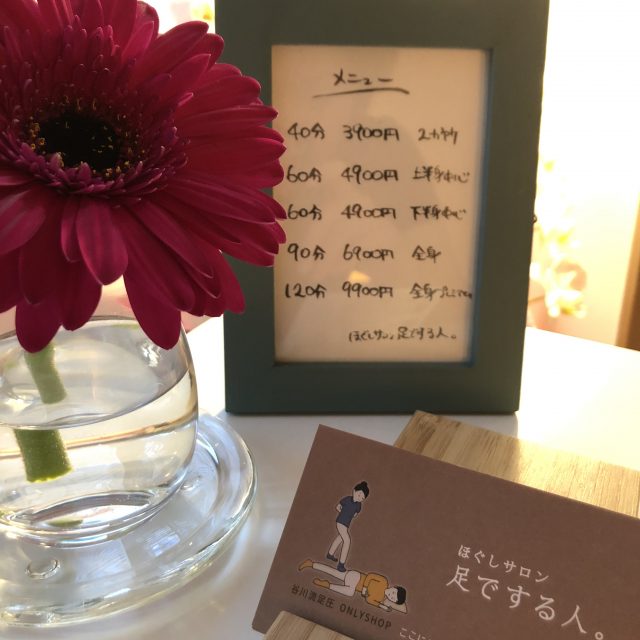 メニュー
40分 3900円 2カ所
60分 4900円 上半身中心
60分 4900円 下半身中心
90分 6900円 全身
120分 9900円 全身
ほぐしサロン 足でする人。
ほぐしサロン
足でする人。
谷川流足圧 ONLYSHOP